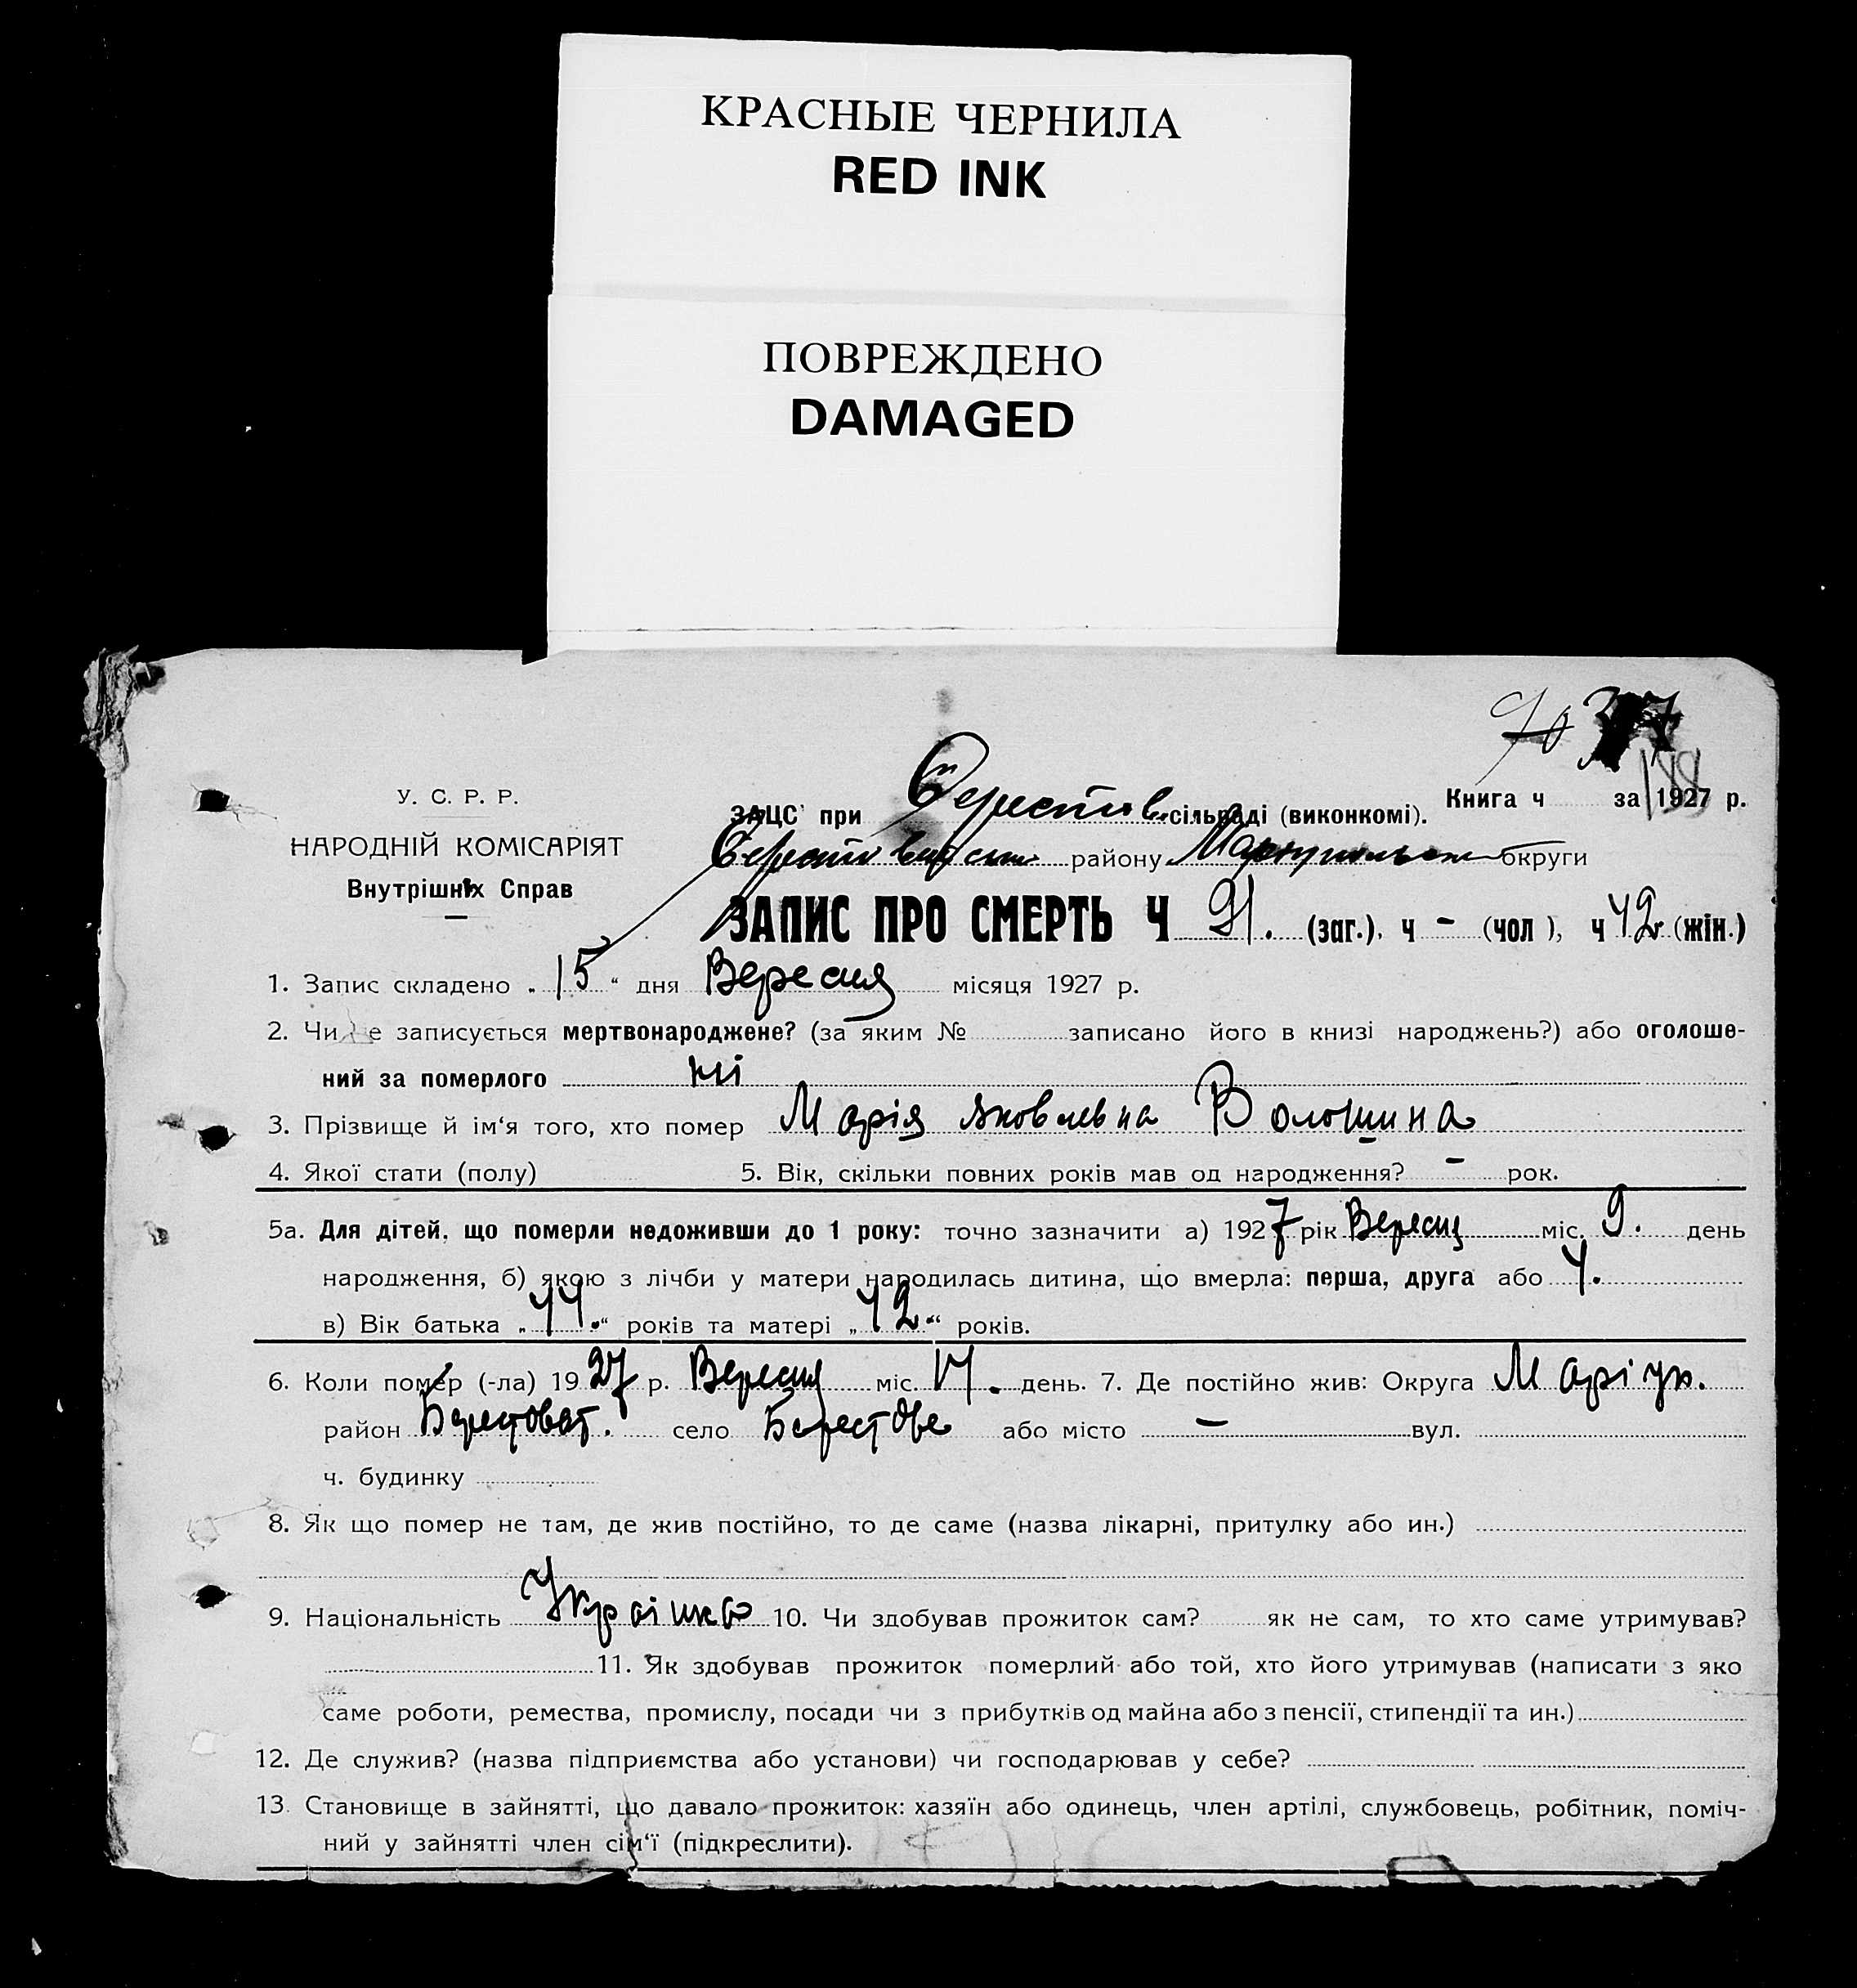 КРАСНЫЕ ЧЕРНИЛА
RED INK
ПОВРЕЖДЕНО
DAMAGED
У. С. Р. Р.
НАРОДНІЙ КОМІСАРІЯТ
Внутрішніх Справ
Книга ч за 1927 р.
ЗАЦС при Берестів. сільраді (виконкомі).
району Маріупольськ округи
ЗАПИС ПРО СМЕРТЬ Ч 91. (заг.), ч - (чол), ч 42 (жін.)
1. Запис складено „15“ дня Вересня місяця 1927 р.
2. Чи не записується мертвонароджене? (за яким № записано його в книзі народжень?) або оголоше-
ний за померлого ні
3. Прізвище й ім'я того, хто помер Марія Яковлевна Волошина
4. Якої стати (полу) 5. Вік, скільки повних років мав од народження? - рок.
5а. Для дітей, що померли недоживши до 1 року: точно зазначити а) 1927 рік Вересня міс. 9. день
народження, б) якою з лічби у матери народилась дитина, що вмерла: перша, друга або 4.
в) Вік батька „44.“ років та матері „42.“ років.
6. Коли помер (-ла) 1927 р. Вересня міс. 14. день. 7. Де постійно жив: Округа Маріуп.
район Берестоват. село Берестове або місто - вул.
ч. будинку
8. Як що помер не там, де жив постійно, то де саме (назва лікарні, притулку або ин.)
9. Національність Українка 10. Чи здобував прожиток сам? як не сам, то хто саме утримував?
11. Як здобував прожиток померлий або той, хто його утримував (написати з яко
саме роботи, ремества, промислу, посади чи з прибутків од майна або з пенсії, стипендії та ин.)
12. Де служив? (назва підприємства або установи) чи господарював у себе?
13. Становище в зайнятті, що давало прожиток: хазяїн або одинець, член артілі, службовець, робітник, поміч-
ний у зайнятті член сім'ї (підкреслити).